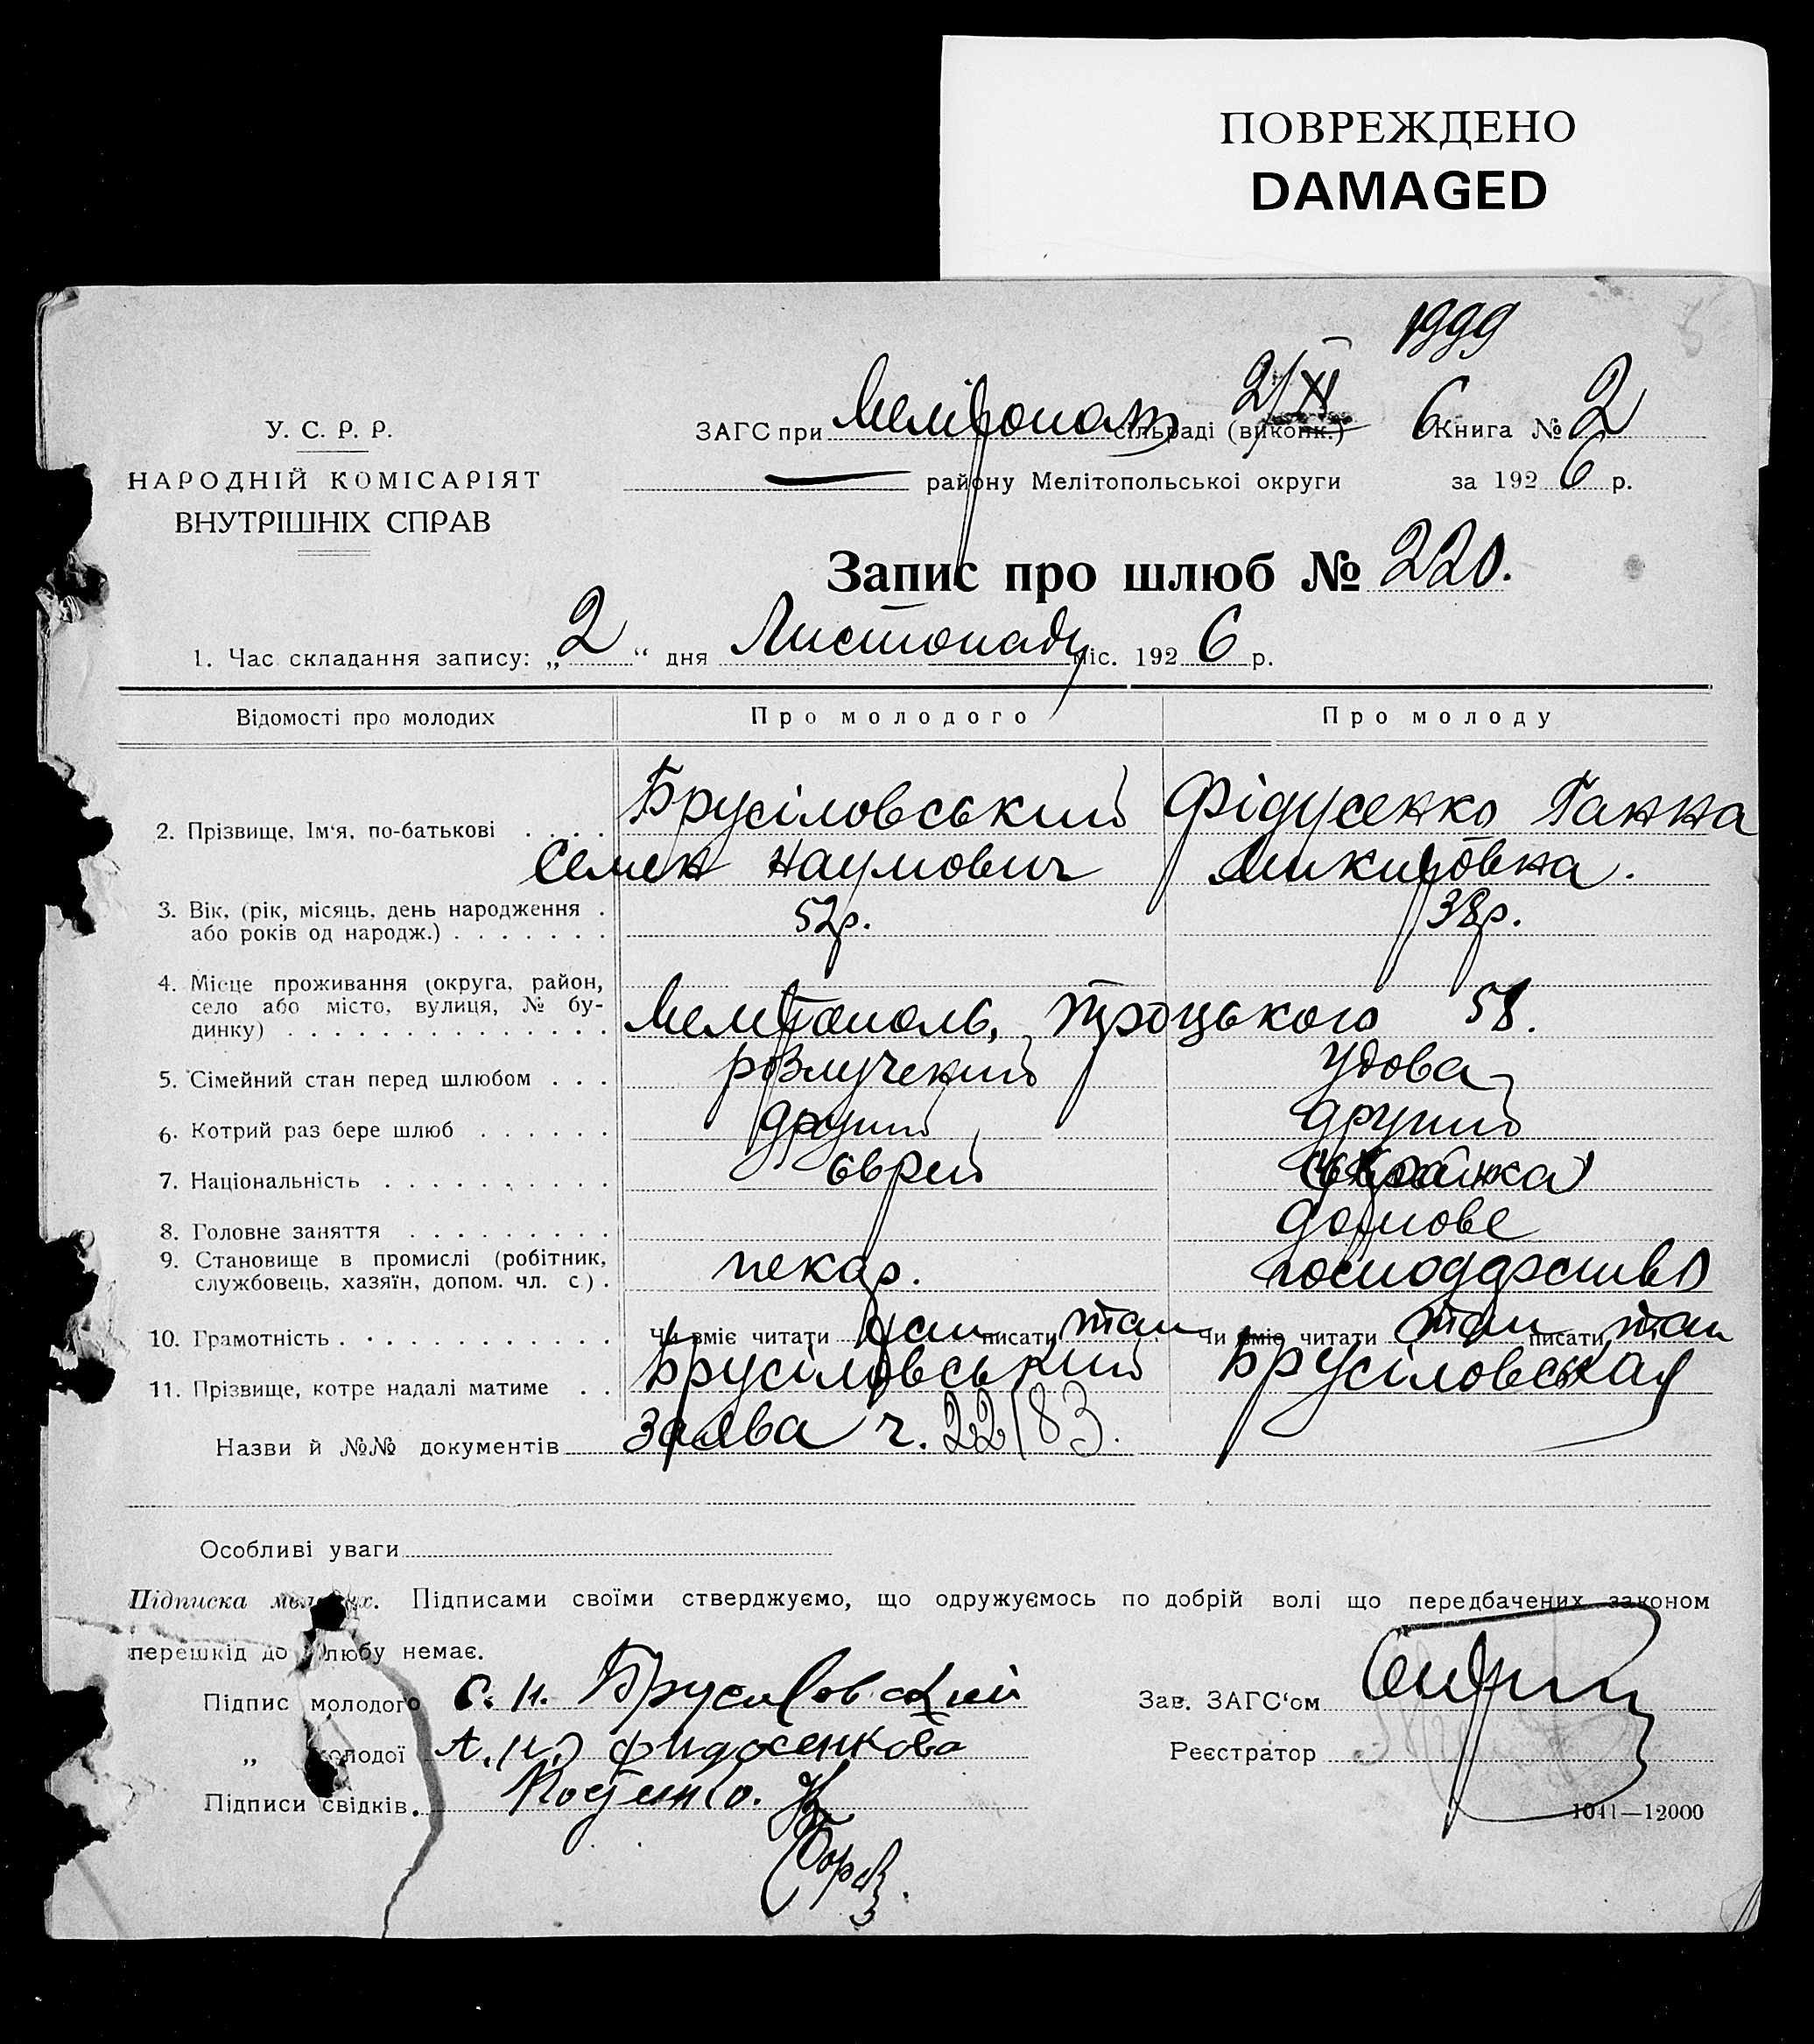 ПОВРЕЖДЕНО
DAMAGED
1999
У. С. Р. Р.
НАРОДНІЙ КОМІСАРІЯТ
ВНУТРІШНІХ СПРАВ
ЗАГС при Мелітополь сільраді (виконк.) 2/XI 6 Книга № 2
— району Мелітопольської округи за 1926 р.
Запис про шлюб № 220.
1. Час складання запису: „2“ дня Листопаду міс. 1926 р.
Відомості про молодих Про молодого Про молоду
2. Прізвище, Ім‘я, по-батькові . . . . Брусіловський Фідусенко Ганна
Семен Наумович Микитовна.
3. Вік, (рік, місяць, день народження .
або років од народж.) . . . . . . . 52р. 38р.
4. Місце проживання (округа, район,
село або місто, вулиця, № бу-
динку) . . . . . . . . . . . . . . Мелітополь, Троцького 58.
5. Сімейний стан перед шлюбом . . . розлучений удова
6. Котрий раз бере шлюб . . . . . . другий другий
7. Національність . . . . . . . . . . єврей українка
8. Головне заняття . . . . . . . . . домове
9. Становище в промислі (робітник,
службовець, хазяїн, допом. чл. с.) . пекар. господарство
10. Грамотність . . . . . . . . . . . Чи вміє читати так писати так Чи вміє читати так писати так
11. Прізвище, котре надалі матиме . . Брусіловський Брусіловськая
Назви й №№ документів заява ч. 22183.
Особливі уваги
Підписка молодих. Підписами своїми стверджуємо, що одружуємось по добрій волі що передбачених законом
перешкід до шлюбу немає.
Підпис молодого С. Н. Брусиловский Зав. ЗАГС‘ом
„ молодої А. Н. Фидосенкова Реєстратор
Підписи свідків.
1041—12000